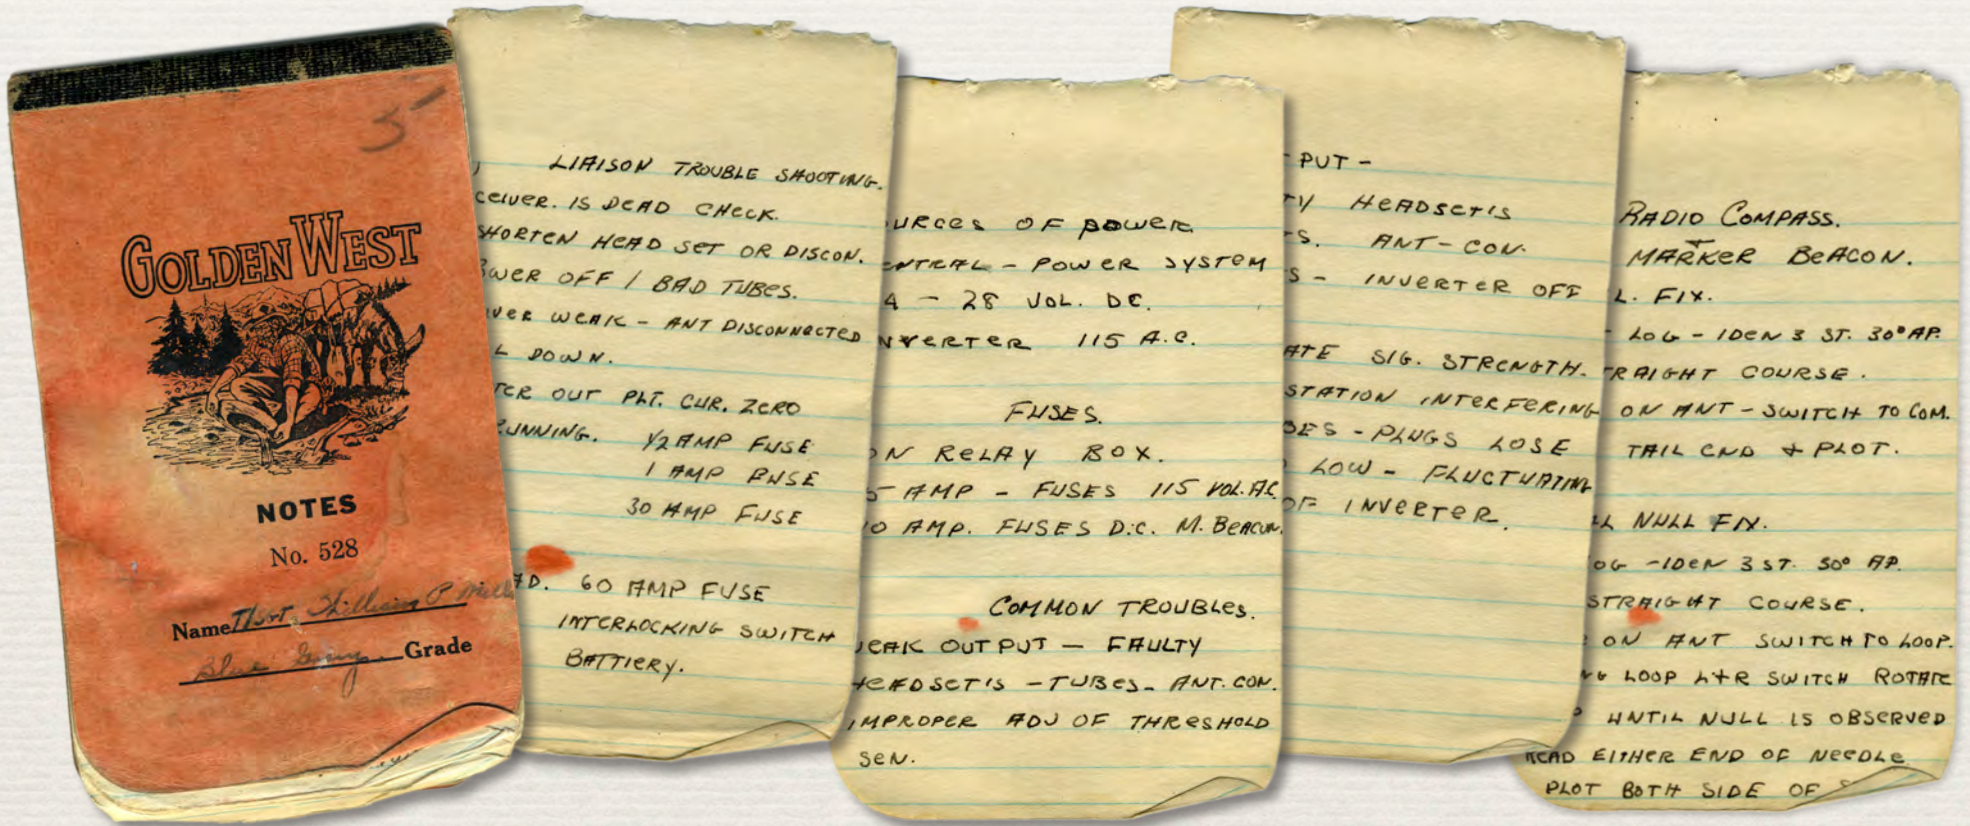 5
GOLDEN WEST
NOTES
No. 528
Name T/Sgt. William P.
Grade
LIAISON TROUBLE SHOOTING.
CEIVER. IS DEAD CHECK.
SHORTEN HEAD SET OR DISCON.
OWER OFF / BAD TUBES.
IVER WEAK - ANT DISCONNECTED
L DOWN.
TER OUT PLT. CUR. ZERO
UNNING. 1/2 AMP FUSE
1 AMP FUSE
30 AMP FUSE
AD. 60 AMP FUSE
INTERLOCKING SWITCH
BATTIERY.
URCES OF POWER
ENTRAL - POWER SYSTEM
4 - 28 VOL. DC.
NVERTER 115 A.C.
FUSES.
ON RELAY BOX.
5 AMP - FUSES 115 VOL. AC.
10 AMP. FUSES D.C. M. BEACON.
COMMON TROUBLES.
WEAK OUTPUT - FAULTY
HEADSET'S - TUBES - ANT. CON.
IMPROPER ADJ OF THRESHOLD
SEN.
PUT -
TY HEADSET'S
S. ANT - CON.
S - INVERTER OFF
ATE SIG. STRENGTH.
STATION INTERFERING
BES - PLUGS LOSE
LOW - FLUCTUATING
OF INVERTER.
RADIO COMPASS.
+
MARKER BEACON.
L. FIX.
- LOG - IDEN 3 ST. 30° AP.
TRAIGHT COURSE.
ON ANT - SWITCH TO COM.
TAIL END + PLOT.
LL NULL FIX.
OG - IDEN 3 ST. 30° AP.
STRAIGHT COURSE.
ON ANT SWITCH TO LOOP.
NG LOOP L+R SWITCH ROTATE
P UNTIL NULL IS OBSERVED
READ EITHER END OF NEEDLE
PLOT BOTH SIDE OF